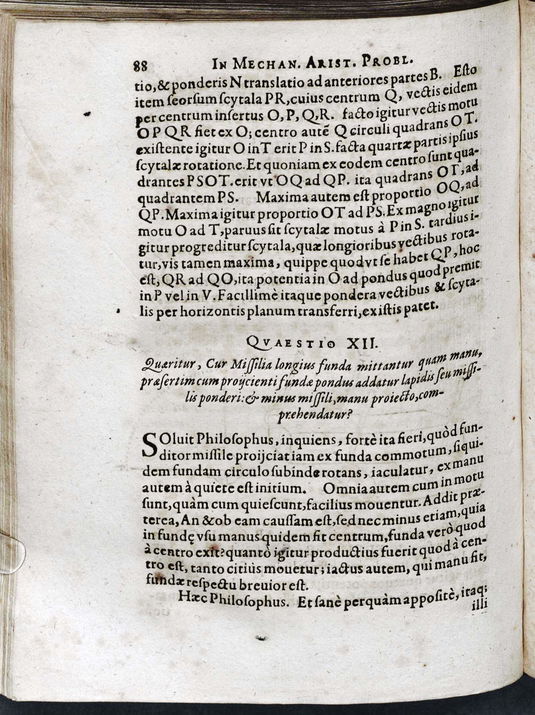 88 IN MECHAN. ARIST. PROBL.
tio, & ponderis N translatio ad anteriores partes B. Esto
item seorsum scytala PR, cuius centrum Q, vectis eidem
per centrum insertus O, P, Q, R. facto igitur vectis motu
O P QR fiet ex O; centro autē Q circuli quadrans O T.
existente igitur O in T erit P in S. facta quartæ partis ipsius
scytalæ rotatione. Et quoniam ex eodem centro sunt qua-
drantes PSOT. erit vt OQ ad QP. ita quadrans OT, ad
quadrantem PS. Maxima autem est proportio OQ, ad
QP. Maxima igitur proportio OT ad PS. Ex magno igitur
motu O ad T, paruus fit scytalæ motus à P in S. tardius i-
gitur progreditur scytala, quæ longioribus vectibus rota-
tur, vis tamen maxima, quippe quod vt se habet QP, hoc
est, QR ad QO, ita potentia in O ad pondus quod premit
in P vel in V. Facillimè itaque pondera vectibus & scyta-
lis per horizontis planum transferri, ex istis patet.
QVAESTIO XII.
Quæritur, Cur Missilia longius funda mittantur quam manu,
præsertim cum proijcienti fundæ pondus addatur lapidis seu missi-
lis ponderi: & minus missili, manu proiecto, com-
prehendatur?
SOluit Philosophus, inquiens, fortè ita fieri, quòd fun-
ditor missile proijciat iam ex funda commotum, siqui-
dem fundam circulo subinde rotans, iaculatur, ex manu
autem à quiete est initium. Omnia autem cum in motu
sunt, quàm cum quiescunt, facilius mouentur. Addit præ-
terea, An & ob eam caussam est, sed nec minus etiam, quia
in fundę vsu manus quidem fit centrum, funda verò quod
à centro exit? quantò igitur productius fuerit quod à cen-
tro est, tanto citiùs mouetur; iactus autem, qui manu fit,
fundæ respectu breuior est.
Hæc Philosophus. Et sanè perquàm appositè, itaq;
illi